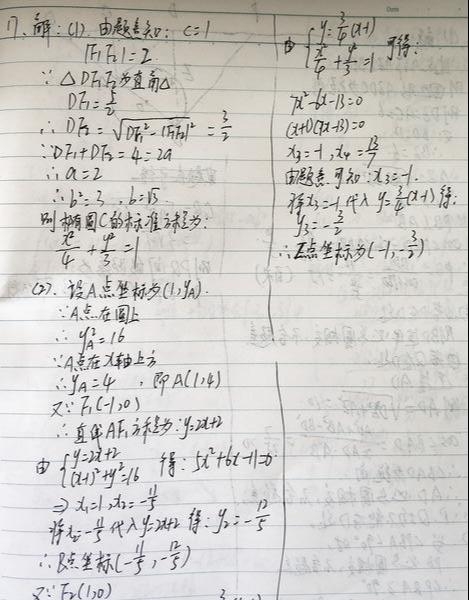 17、解：(1). 由题意知：c=1
|F₁F₂|=2.
∵△DF₁F₂为直角△
DF₁=5/2
∴DF₂=√(DF₁²-|F₁F₂|²)=3/2
∵DF₁+DF₂=4=2a
∴a=2
∴b²=3，b=√3
则椭圆C的标准方程为：
x²/4+y²/3=1
(2). 设A点坐标为(1,yA).
∵A点在圆上
∴yA²=16
∵A点在x轴上方
∴yA=4，即A(1,4)
又∵F₁(-1,0)
∴直线AF₁方程为：y=2x+2
由{y=2x+2
(x-1)²+y²=16 得：5x²+6x-11=0
⇒x₁=1,x₂=-11/5
将x₂=-11/5代入y=2x+2得：y₂=-12/5
∴B点坐标(-11/5,-12/5)
又∵F₂(1,0)
由{y=3/4(x-1)
x²/4+y²/3=1 可得：
7x²-6x-13=0
(x+1)(7x-13)=0
x₃=-1,x₄=13/7
由题意可知：x₃=-1.
将x₃=-1代入y=3/4(x-1)得：
y₃=-3/2
∴E点坐标为(-1,-3/2)